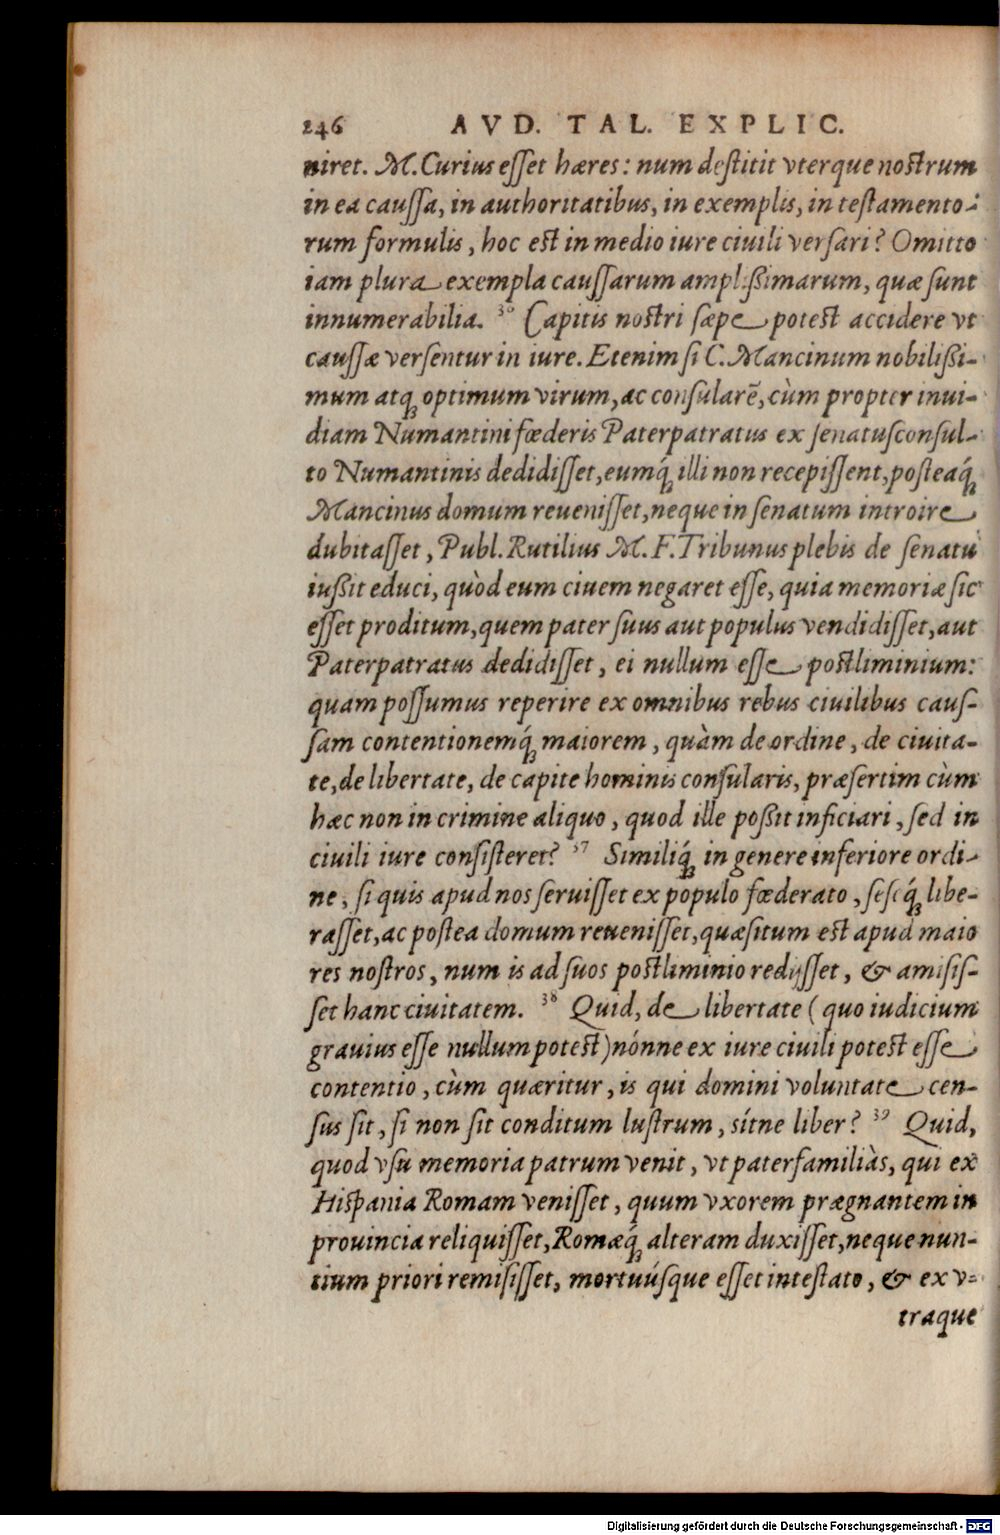 246 AVD. TAL. EXPLIC.
niret. M. Curius esset hæres: num destitit vterque nostrum
in ea caussa, in authoritatibus, in exemplis, in testamento-
rum formulis, hoc est in medio iure ciuili versari? Omitto
iam plura exempla caussarum amplißimarum, quæ sunt
innumerabilia. 36 Capitis nostri sæpe potest accidere vt
caussæ versentur in iure. Etenim si C. Mancinum nobilißi-
mum atq; optimum virum, ac consularẽ, cùm propter inui-
diam Numantini fœderis Paterpatratus ex senatusconsul-
to Numantinis dedidisset, eumq́; illi non recepissent, posteaq́;
Mancinus domum reuenisset, neque in senatum introire
dubitasset, Publ. Rutilius M. F. Tribunus plebis de senatu
iußit educi, quòd eum ciuem negaret esse, quia memoriæ sic
esset proditum, quem pater suus aut populus vendidisset, aut
Paterpatratus dedidisset, ei nullum esse postliminium:
quam possumus reperire ex omnibus rebus ciuilibus caus-
sam contentionemq́; maiorem, quàm de ordine, de ciuita-
te, de libertate, de capite hominis consularis, præsertim cùm
hæc non in crimine aliquo, quod ille poßit inficiari, sed in
ciuili iure consisteret? 37 Similiq́; in genere inferiore ordi-
ne, si quis apud nos seruisset ex populo fœderato, seseq́; libe-
rasset, ac postea domum reuenisset, quæsitum est apud maio
res nostros, num is ad suos postliminio redijsset, & amisis-
set hanc ciuitatem. 38 Quid, de libertate (quo iudicium
grauius esse nullum potest) nónne ex iure ciuili potest esse
contentio, cùm quæritur, is qui domini voluntate cen-
sus sit, si non sit conditum lustrum, sítne liber? 39 Quid,
quod vsu memoria patrum venit, vt paterfamiliàs, qui ex
Hispania Romam venisset, quum vxorem prægnantem in
prouincia reliquisset, Romæq́; alteram duxisset, neque nun-
tium priori remisisset, mortuúsque esset intestato, & ex v-
traque
Digitalisierung gefördert durch die Deutsche Forschungsgemeinschaft - DFG